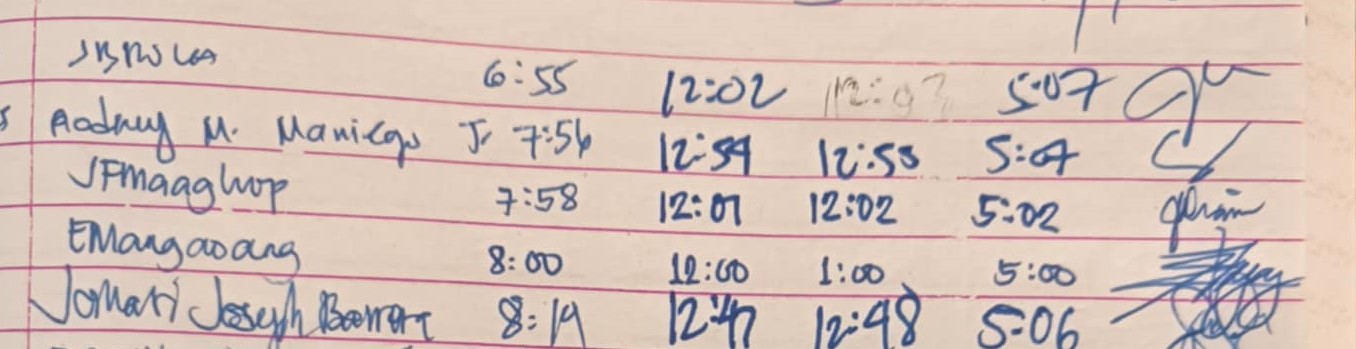 6:55 12:02 12:03 5:07
Rodney M. Maniego Jr 7:56 12:54 12:55 5:04
JFMaaghop 7:58 12:01 12:02 5:02
EMangaoang 8:00 12:00 1:00 5:00
Joseph 8:19 12:47 12:48 5:06